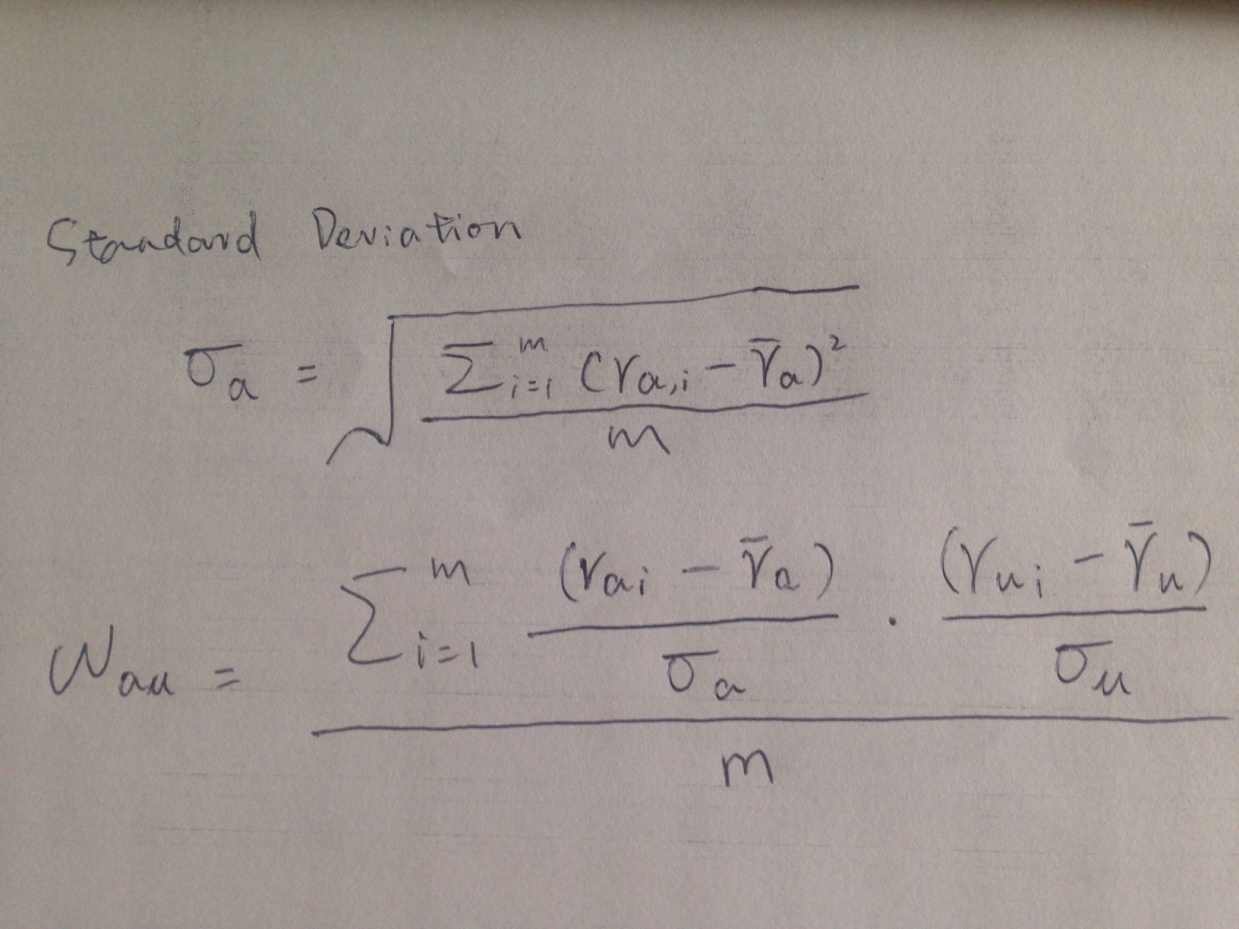 Standard Deviation
σ_a = √( Σ_{i=1}^{m} (r_{a,i} - r̄_a)² / m )
w_{au} = ( Σ_{i=1}^{m} (r_{ai} - r̄_a) / σ_a · (r_{ui} - r̄_u) / σ_u ) / m